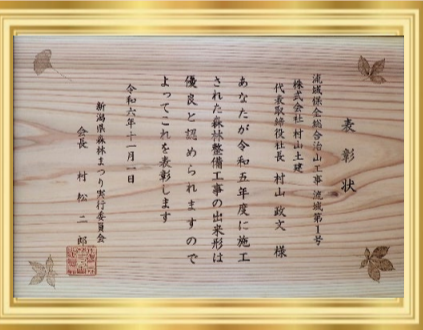 表彰状
流域保全総合治山工事 流域第1号
株式会社 村山土建
代表取締役社長 村山 政文 様
あなたが令和五年度に施工
された森林整備工事の出来形は
優良と認められますので
よってこれを表彰します
令和六年十一月一日
新潟県森林まつり実行委員会
会長 村松 二郎